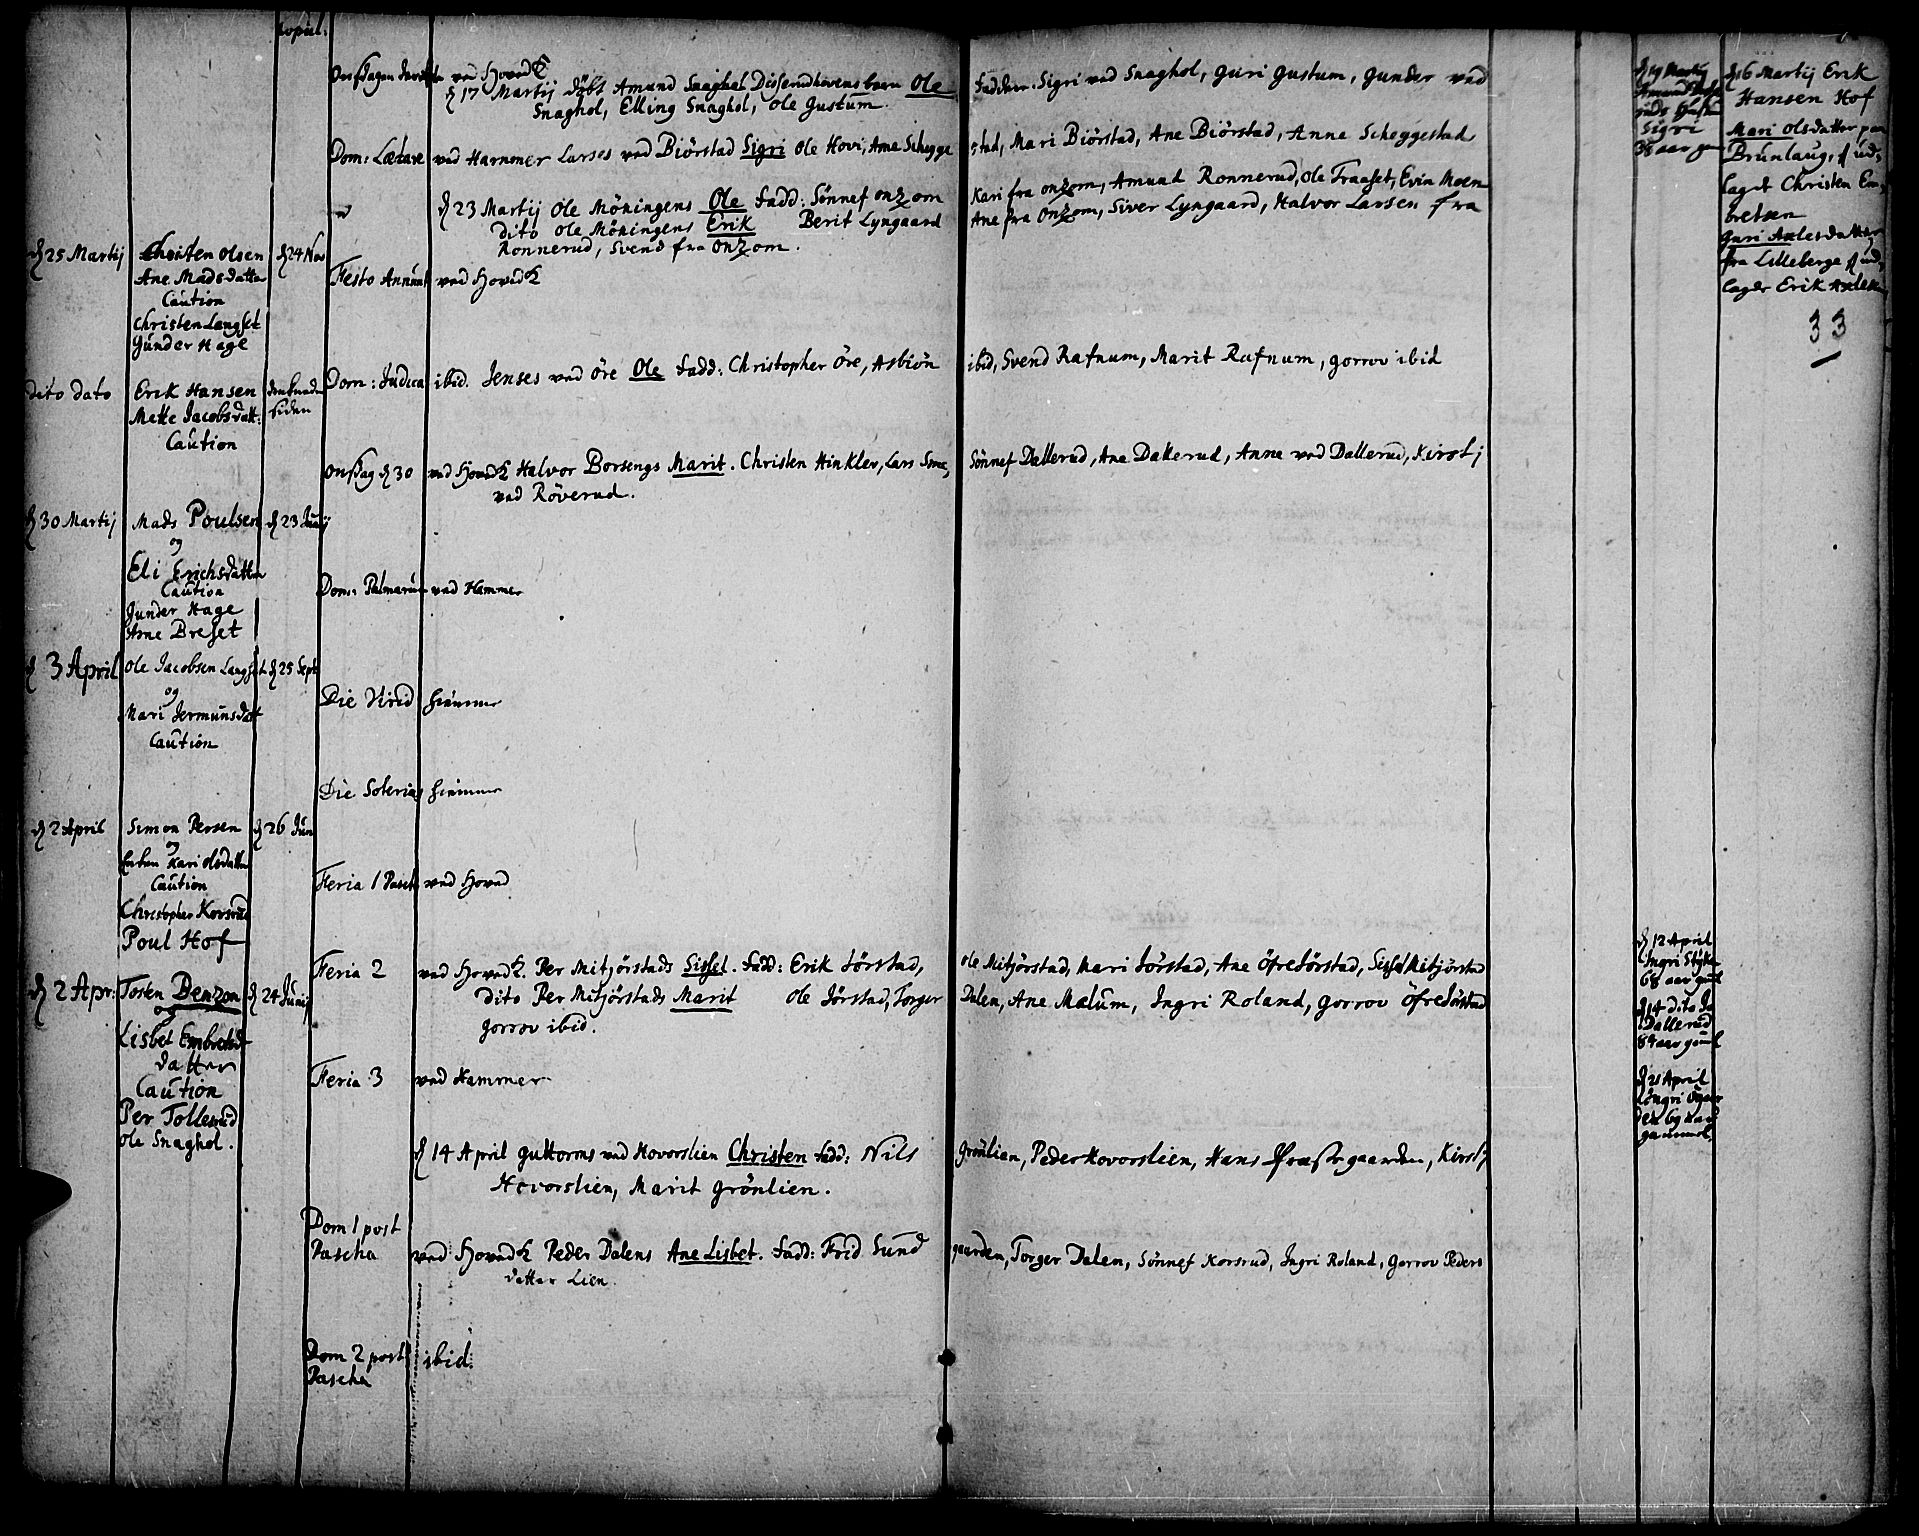 copul:
Onsdagen derefter ved Hoved K
d 17 Martij döbt Amund Snaghol Dissendhovens barn Ole
Faddere. Sigri ved Snaghol, Guri Gustum, Gunder ved
Snaghol, Elling Snaghol, Ole Gustum.
Dom: Lætare ved Hammer Larses ved Biörstad Sigri Ole Hovi, Arne Schegge
stad, Mari Biörstad, Ane Biörstad, Anne Scheggestad
d 23 Martij Ole Möningens Ole Fadd: Sönnef Onzom
Kari fra Onzom, Amund Ronnerud, Ole Fraaset, Evin Moen
dito Ole Möningens Erik Berit Lyngaard
Ane fra Onzom, Siver Lyngaard, Halvor Larsen fra
Ronnerud, Svend fra Onzom.
d 25 Martij Christen Olsen d 24 Nov
Ane Madsdatter
Caution
Christen Langset
Gunder Hage
Festo Annunt ved Hoved K
dito dato Erik Hansen
Mette Jacobsdatt:
Caution
Dom: Judica ibid. Jenses ved Öre Ole Fadd: Christopher Öre, Asbiön
ibid, Svend Rafnum, Marit Rafnum, Gorrov ibid
Onsdag d 30 ved Hoved K Halvor Borsengs Marit. Christen Hinkler, Lars
Sönnef Dallerud, Ane Dallerud, Anne ved Dallerud, Kirstj
ved Röverud.
d 30 Martij Mads Poulsen d 23 Junij
og
Eli Erichsdatter
Caution
Gunder Hage
Arne Breset
Dom: Palmarum ved Hammer
d 3 April Ole Jacobsen Langset d 25 Sept
og
Mari Jermunsdat
Caution
Die Virid hiemme
Die Soterias hiemme
d 2 April Simon Persen d 26 Jun
og
Enken Kari Olsdatter
Caution
Christopher Korsrud
Poul Hof
Feria 1 Pasch ved Hoved
d 2 Apr: Tosten Benzon d 24 Junij
og
Lisbet Embretsd
datter
Caution
Per Tollerud
Ole Snaghol.
Feria 2 ved Hoved K. Per Mitjörstads Sissel. Fadd: Erik Jörstad,
Ole Mitjörstad, Mari Jörstad, Ane Öfre Jörstad, Sissel Mitjörstad
dito Per Mitjörstads Marit Ole Jörstad, Torger
Dalen, Ane Mælum, Ingri Roland, Gorrov Öfre Jörstad
Gorrov ibid.
Feria 3 ved Hammer
d 14 April Guttorms ved Hovorslien Christen Fadd: Nils
Grönlien, Peder Hovorslien, Hans Præstegaarden, Kirstj
Hovorslien, Marit Grönlien.
Dom 1 post
Pascha ved Hoved K Peder Dalens Ane Lisbet. Fadd: Frid Sund
gaarden, Torger Dalen, Sönnef Korsrud, Ingri Roland, Gorrov Peders
datter Lien.
Dom 2 post ibid.
Pascha
d 19 Martij
Sigri
38 aar gam
d 12 April
Ingri
68 aar gaml
d 14 dito
Dallerud
84 aar gaml
d 21 April
Ingri
69 aar
gammel
d 16 Martij Erik
Hansen Hof
Mari Olsdatter paa
Brunlaug, d ud,
laget Christen Em
bretsen
Guri Axlesdatter
fra Lilleberge d ud,
lager Erik Axles
33